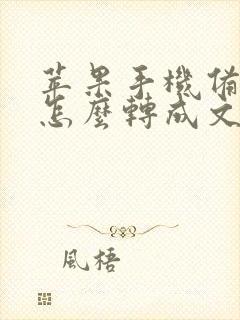 苹果手機備
怎麼轉成文
風梧